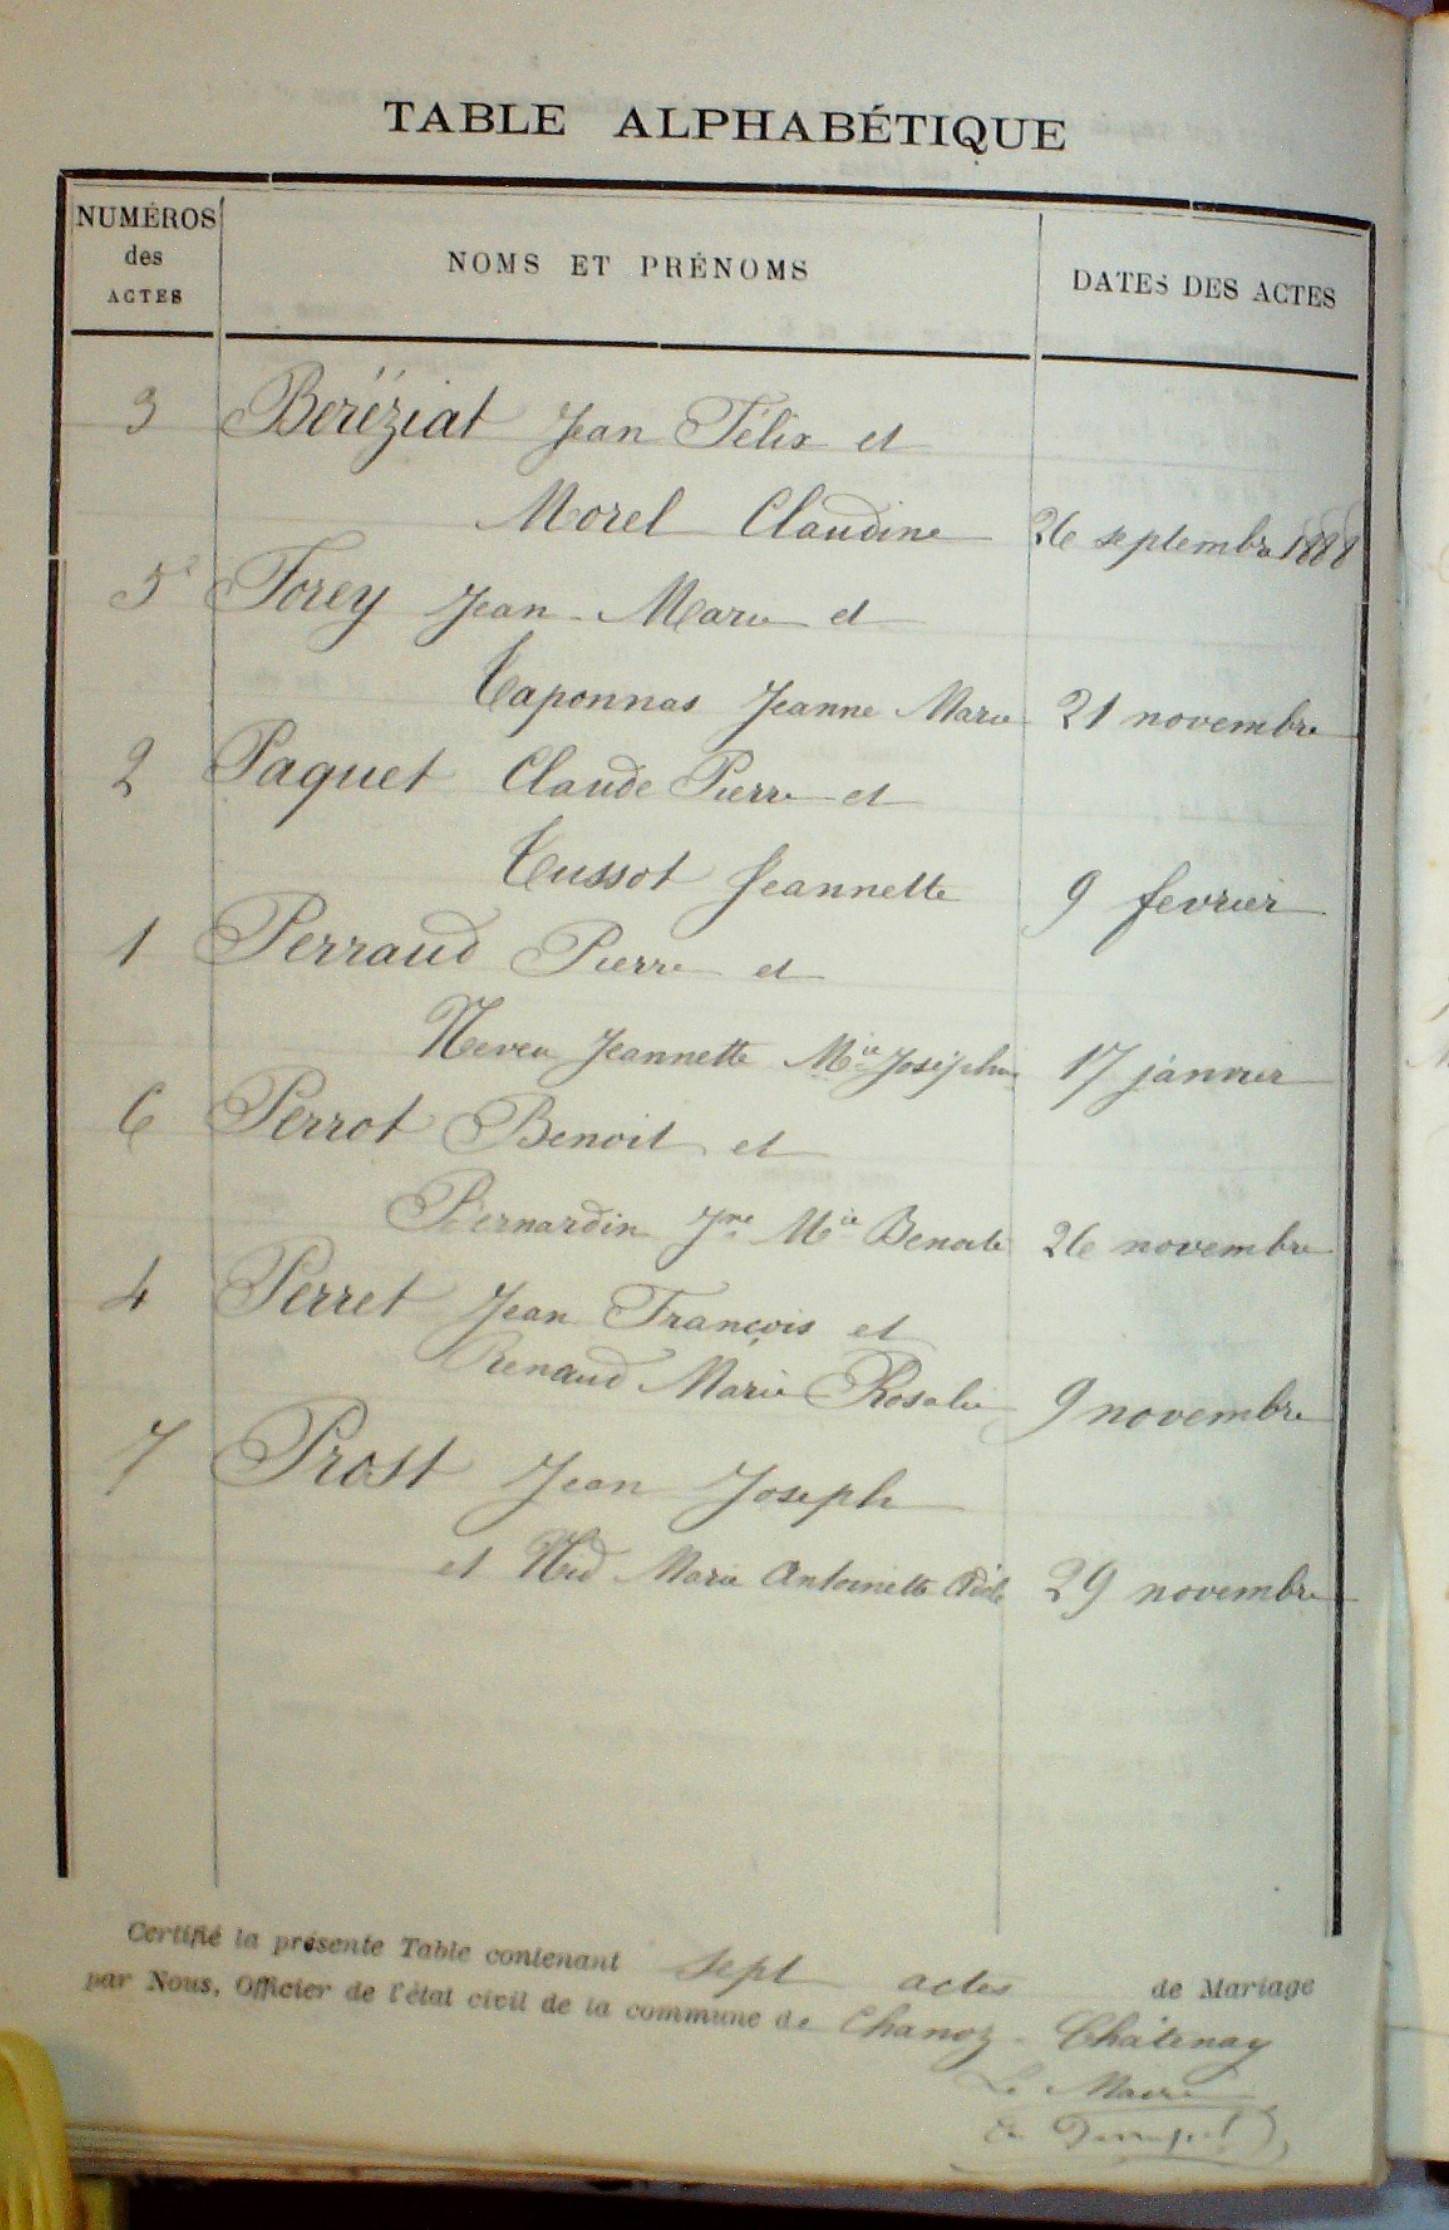 TABLE ALPHABÉTIQUE
NUMÉROS des ACTES
NOMS ET PRÉNOMS
DATES DES ACTES
3 Beréziat Jean Félix et
Morel Claudine 26 septembre 1888
5 Forey Jean-Marie et
Taponnas Jeanne Marie 21 novembre
2 Paquet Claude Pierre et
Cussot Jeannette 9 fevrier
1 Perraud Pierre et
Neveu Jeannette Mie Joséphine 17 janvier
6 Perrot Benoit et
Bernardin Jne Mie Benoite 26 novembre
4 Perret Jean François et
Renaud Marie Rosalie 9 novembre
7 Prost Jean Joseph
et Nid Marie Antoinette Adèle 29 novembre
Certifié la présente Table contenant sept actes de Mariage
par Nous, Officier de l'état civil de la commune de Chanoz-Châtenay
Le Maire